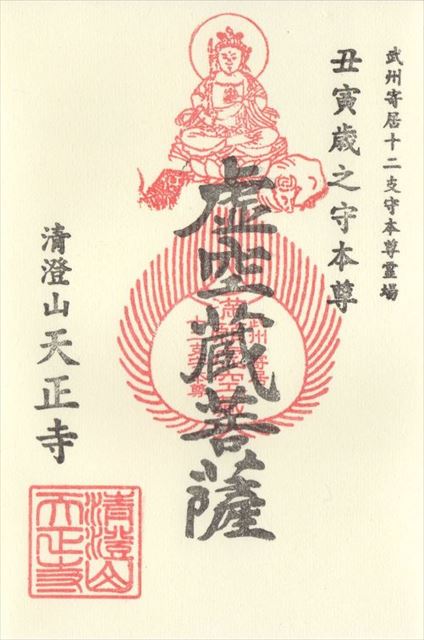 武州寄居十二支守本尊霊場
丑寅歳之守本尊
虚空蔵菩薩
清澄山天正寺
清澄山
天正寺